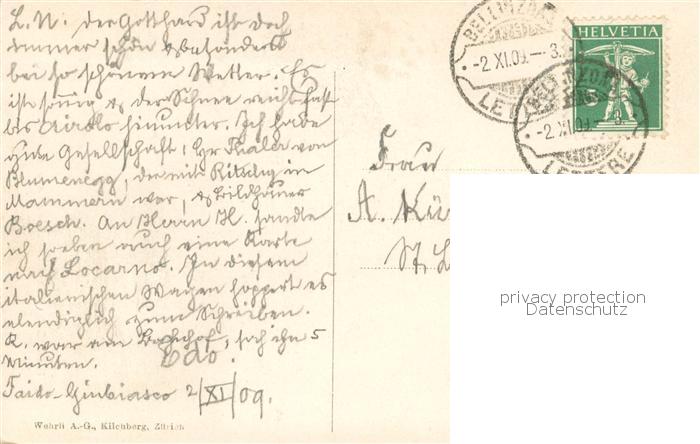 L. N. der Gotthard ist doch
immer schön & besonders
bei so schönem Wetter. Es
ist sonnig & der Schnee reicht fast
bis Airolo hinunter. Ich habe
gute Gesellschaft: Hr Fiala von
Blumenegg, der mit in
Mammern war, & Bildhauer
Boesch. An Herrn H. sandte
ich soeben auch eine Karte
nach Locarno. In diesem
italienischen Wagen hoppert es
elendiglich zum Schreiben.
K. war am Bahnhof, sah ihn 5
Minuten. Edo.
Faido-Giubiasco 2/XI/09.
Wehrli A.-G., Kilchberg, Zürich
BELLINZONA
-2.XI.09.—3.
LE
HELVETIA
BELLINZONA
-2.XI.09.-3.
LETTERE
Frau
A. Kü
St. L
privacy protection
Datenschutz